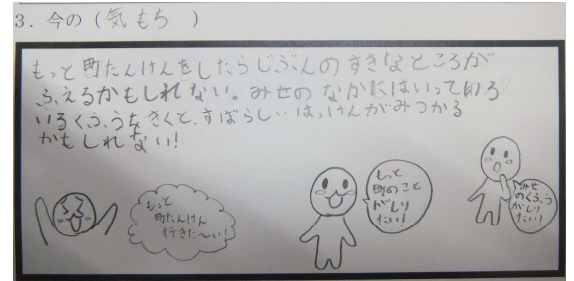 3．今の（気もち　）
もっと町たんけんをしたらじぶんのすきなところが
ふえるかもしれない。みせのなかにはいっていろ
いろくふうをきくと、すばらしいはっけんがみつかる
かもしれない！
もっと
町たんけん
行きた〜い！
もっと
町のこと
がしり
たい！
みせ
のくふう
がしり
たい！